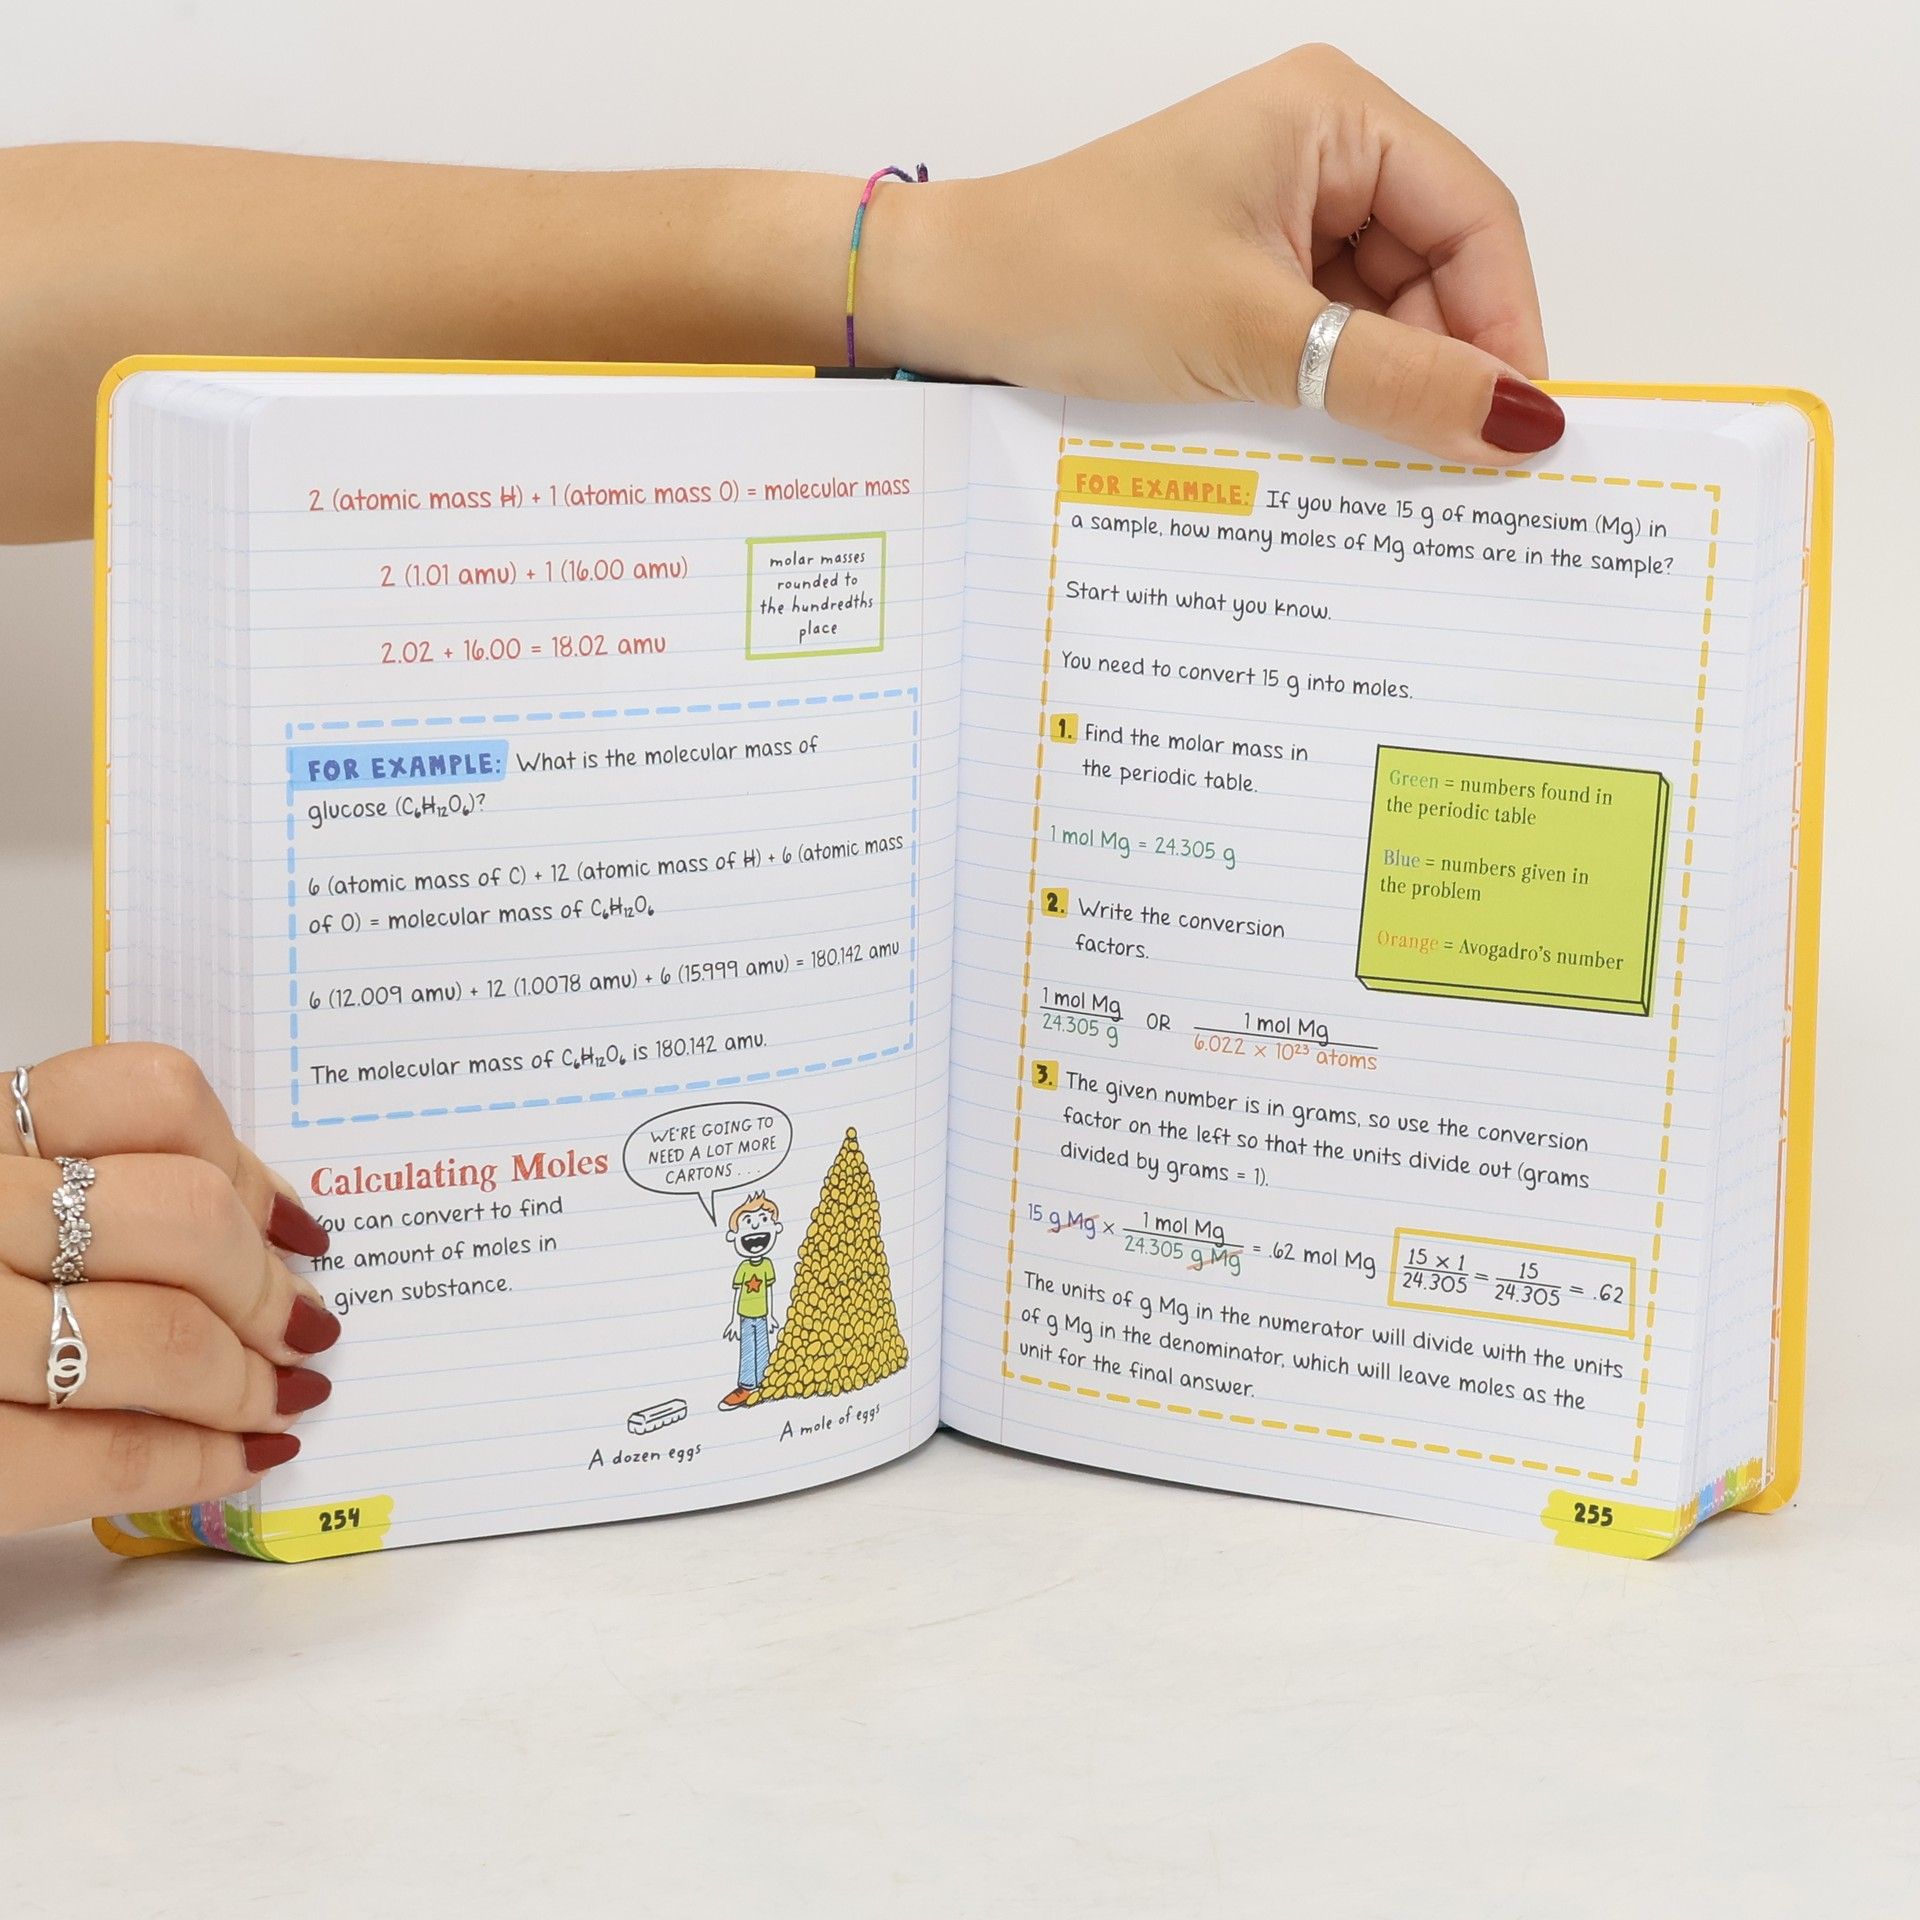 2 (atomic mass H) + 1 (atomic mass O) = molecular mass
2 (1.01 amu) + 1 (16.00 amu)
2.02 + 16.00 = 18.02 amu
molar masses
rounded to
the hundredths
place
FOR EXAMPLE: What is the molecular mass of
glucose (C₆H₁₂O₆)?
6 (atomic mass of C) + 12 (atomic mass of H) + 6 (atomic mass
of O) = molecular mass of C₆H₁₂O₆
6 (12.009 amu) + 12 (1.0078 amu) + 6 (15.999 amu) = 180.142 amu
The molecular mass of C₆H₁₂O₆ is 180.142 amu.
Calculating Moles
You can convert to find
the amount of moles in
given substance.
WE'RE GOING TO
NEED A LOT MORE
CARTONS . . .
A dozen eggs
A mole of eggs
254
FOR EXAMPLE: If you have 15 g of magnesium (Mg) in
a sample, how many moles of Mg atoms are in the sample?
Start with what you know.
You need to convert 15 g into moles.
1. Find the molar mass in
the periodic table.
1 mol Mg = 24.305 g
Green = numbers found in
the periodic table
Blue = numbers given in
the problem
Orange = Avogadro's number
2. Write the conversion
factors.
1 mol Mg / 24.305 g OR 1 mol Mg / 6.022 × 10²³ atoms
3. The given number is in grams, so use the conversion
factor on the left so that the units divide out (grams
divided by grams = 1).
15 g Mg × 1 mol Mg / 24.305 g Mg = .62 mol Mg
15 × 1 / 24.305 = 15 / 24.305 = .62
The units of g Mg in the numerator will divide with the units
of g Mg in the denominator, which will leave moles as the
unit for the final answer.
255